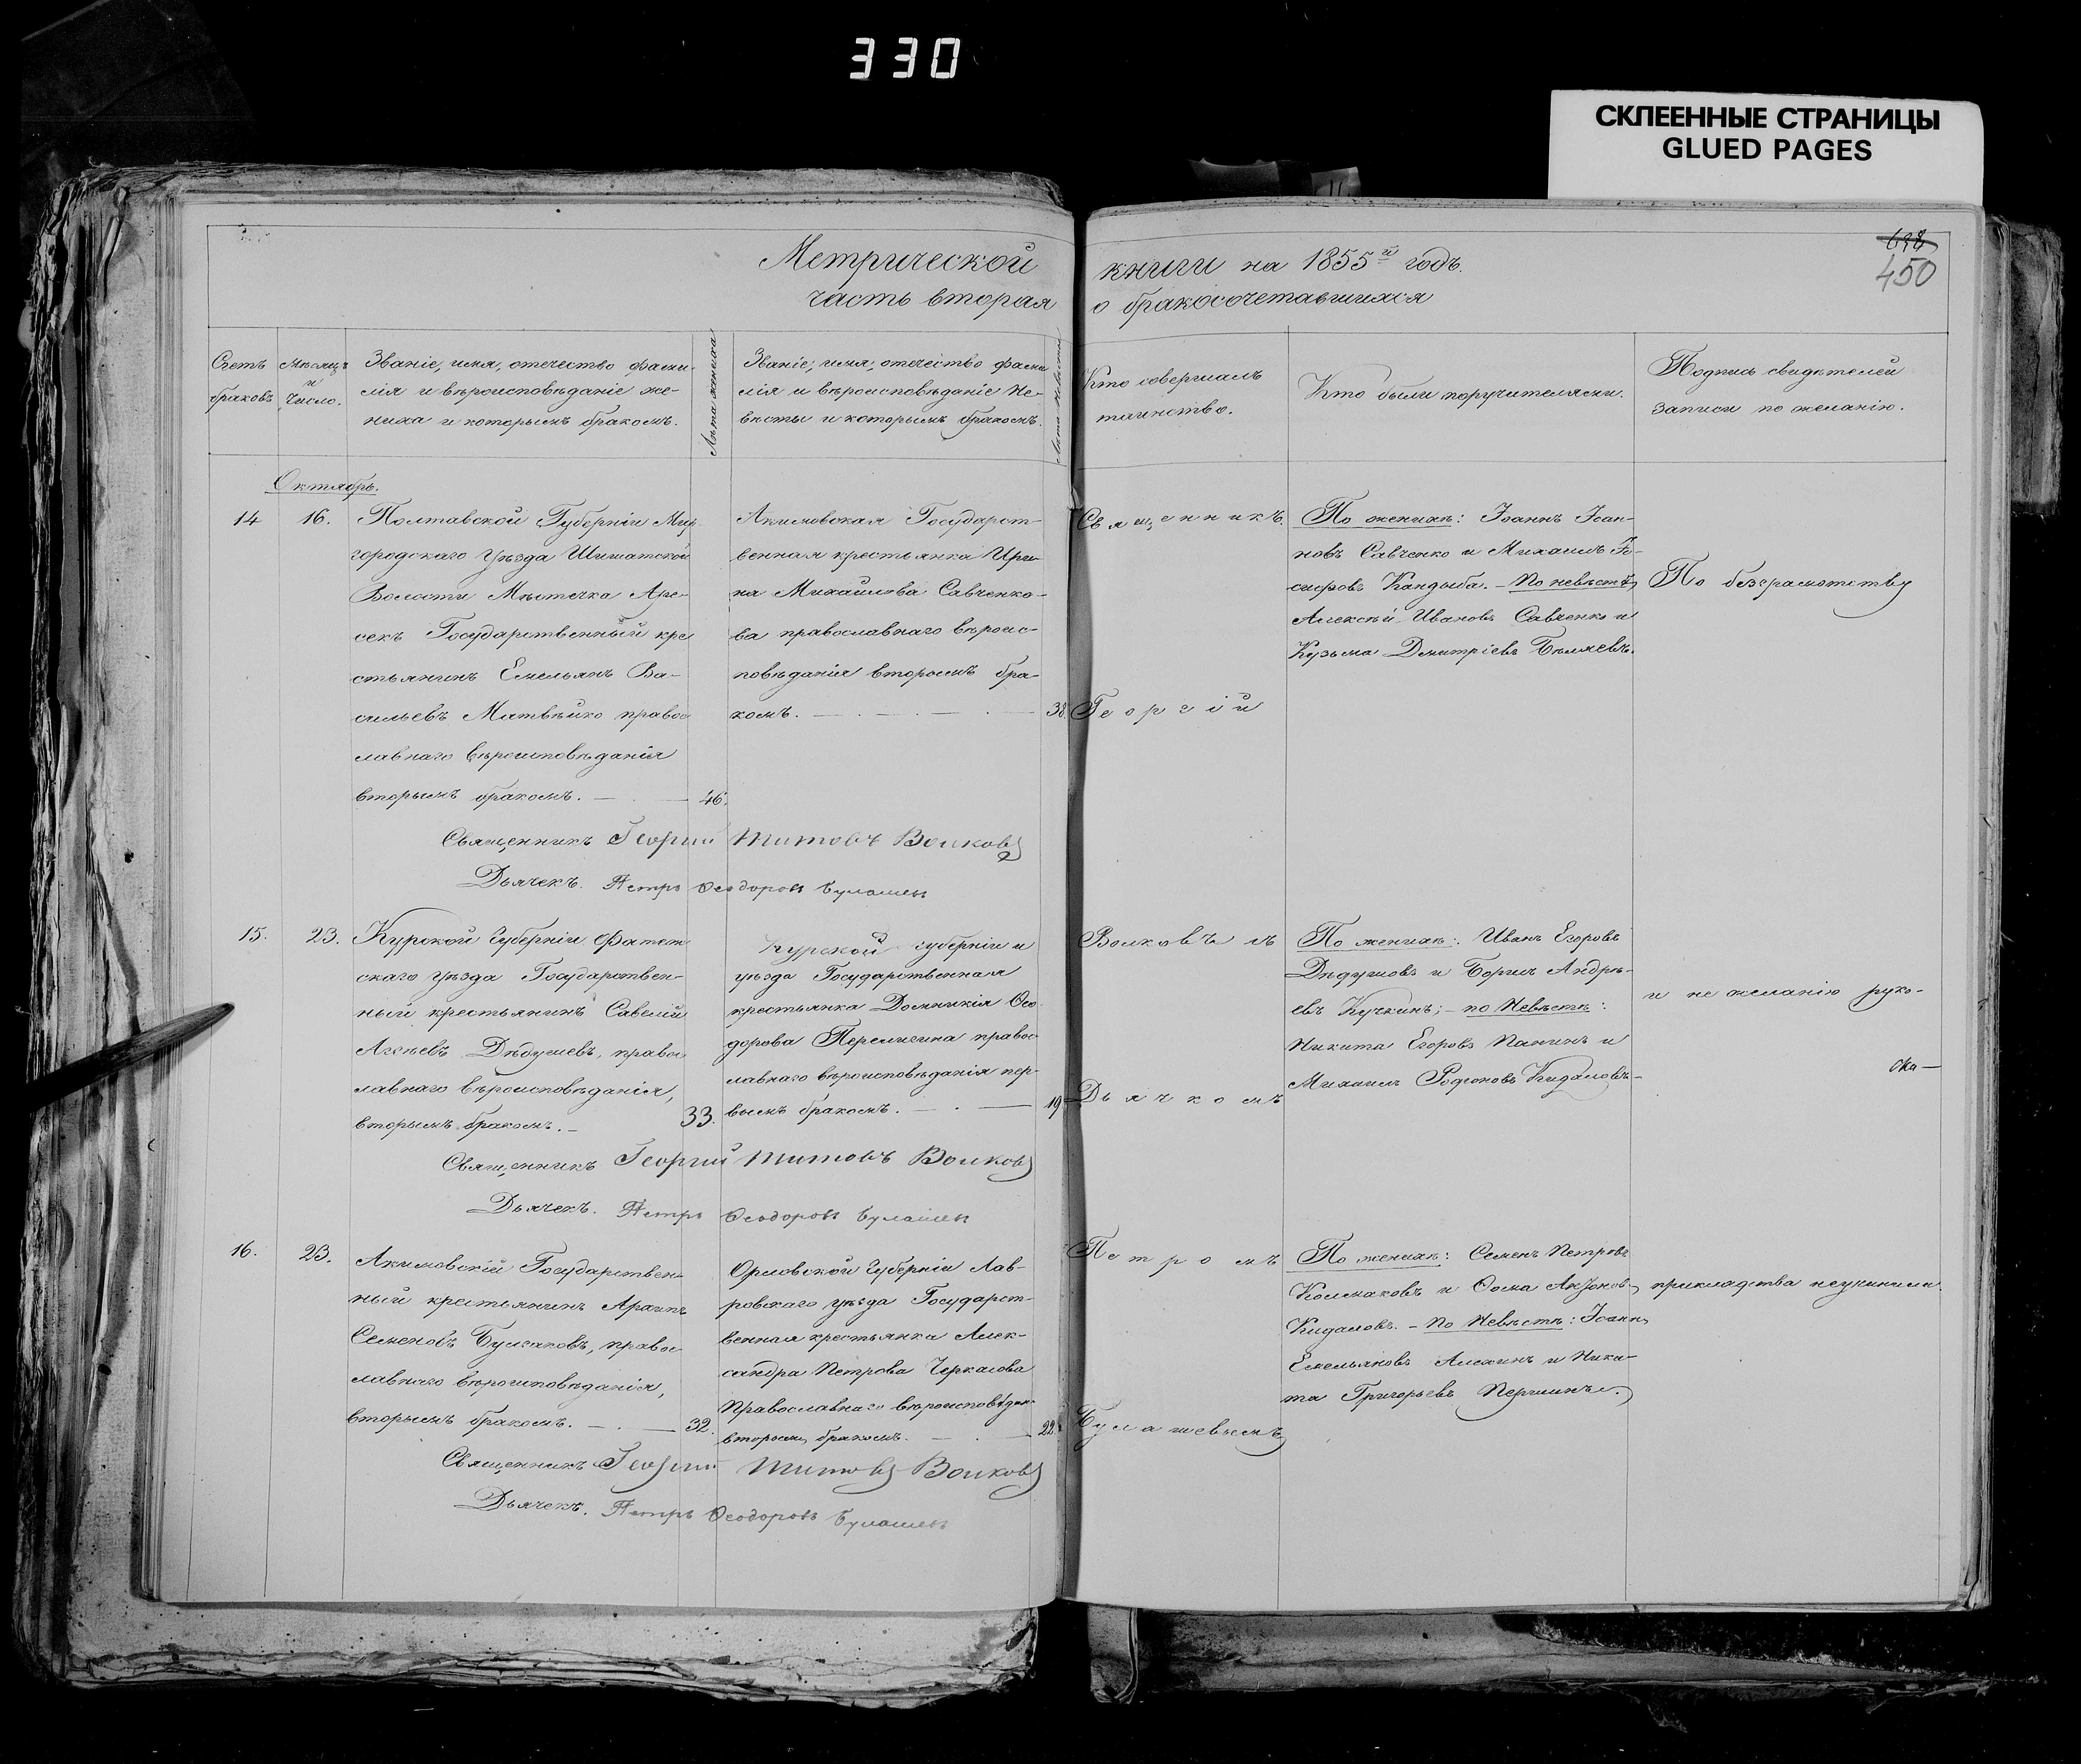 330
СКЛЕЕННЫЕ СТРАНИЦЫ
GLUED PAGES
698
450
Метрической книги на 1855й годъ.
часть вторая о бракосочетавшихся
Счетъ браковъ
Мѣсяцъ и Число.
Званіе, имя, отечество фами-
лія и вѣроисповѣданіе же-
ниха и которымъ бракомъ.
Лѣта жениха
Званіе, имя, отечество фами
лія и вѣроисповѣданіе Не-
вѣсты и которымъ бракомъ.
Лѣта невѣсты
Кто совершалъ
таинство.
Кто были поручителями.
Подпись свидѣтелей
записи по желанію.
Октябрь.
14
16.
Полтавской Губерніи Мир
городскаго Уѣзда Шишатской
Волости Мѣстечка Аре-
секъ Государственный кре
стьянинъ Емельянъ Ва-
сильевъ Матвѣйко правос
лавнаго вѣроисповѣданія
вторымъ бракомъ. 46.
Акимовская Государст-
венная крестьянка Ири-
на Михайлова Савченко-
ва православнаго вѣроис-
повѣданія вторымъ бра-
комъ. 38.
Священникъ
Георгій
По женихѣ: Іоаннъ Іоан-
новъ Савченко и Михаилъ Іо-
сифовъ Кандыба. - По невѣстѣ,
Алексѣй Ивановъ Савченко и
Кузьма Дмитріевъ Бѣляевъ.
По безграмотству
Священникъ Георгій Титовъ Волковъ
Дьячекъ. Петръ Ѳеодоровъ Булашев
15.
23.
Курской Губерніи Фатеж
скаго уѣзда Государствен-
ный крестьянинъ Савелій
Агѣевъ Дѣдушевъ, правос
лавнаго вѣроисповѣданія,
вторымъ бракомъ. - 33.
Курской губерніи и
уѣзда Государственная
крестьянка Домникія Ѳео
дорова Перелигина правос
лавнаго вѣроисповѣданія пер-
вымъ бракомъ. 19
Волковъ съ
Дьячкомъ
По женихѣ: Иванъ Егоровъ
Дѣдушовъ и Борисъ Андрѣ-
евъ Кучкинъ; - по Невѣстѣ:
Никита Егоровъ Панинъ и
Михаилъ Родіоновъ Кидаловъ-
и не желанію руко-
Священникъ Георгій Титовъ Волковъ
Дьячекъ. Петръ Ѳеодоровъ Булашев
16.
23.
Акимовскій Государствен-
ный крестьянинъ Архипъ
Семеновъ Булгаковъ, правос
лавнаго вѣроисповѣданія,
вторымъ бракомъ. 32.
Орловской Губерніи Лав-
ровскаго уѣзда Государст-
венная крестьянка Алек-
сандра Петрова Черкасова
Православнаго вѣроисповѣдан-
вторымъ бракомъ. 22.
Петромъ
Булашевымъ
По женихѣ: Семенъ Петровъ
Колмаковъ и Ѳома Антонов,
Кидаловъ. - По Невѣстѣ: Іоаннъ
Емельяновъ Алехинъ и Ники-
та Григорьевъ Першинъ.
прикладства неучинили.
Священникъ Георгій Титовъ Волковъ
Дьячекъ. Петръ Ѳеодоровъ Булашев